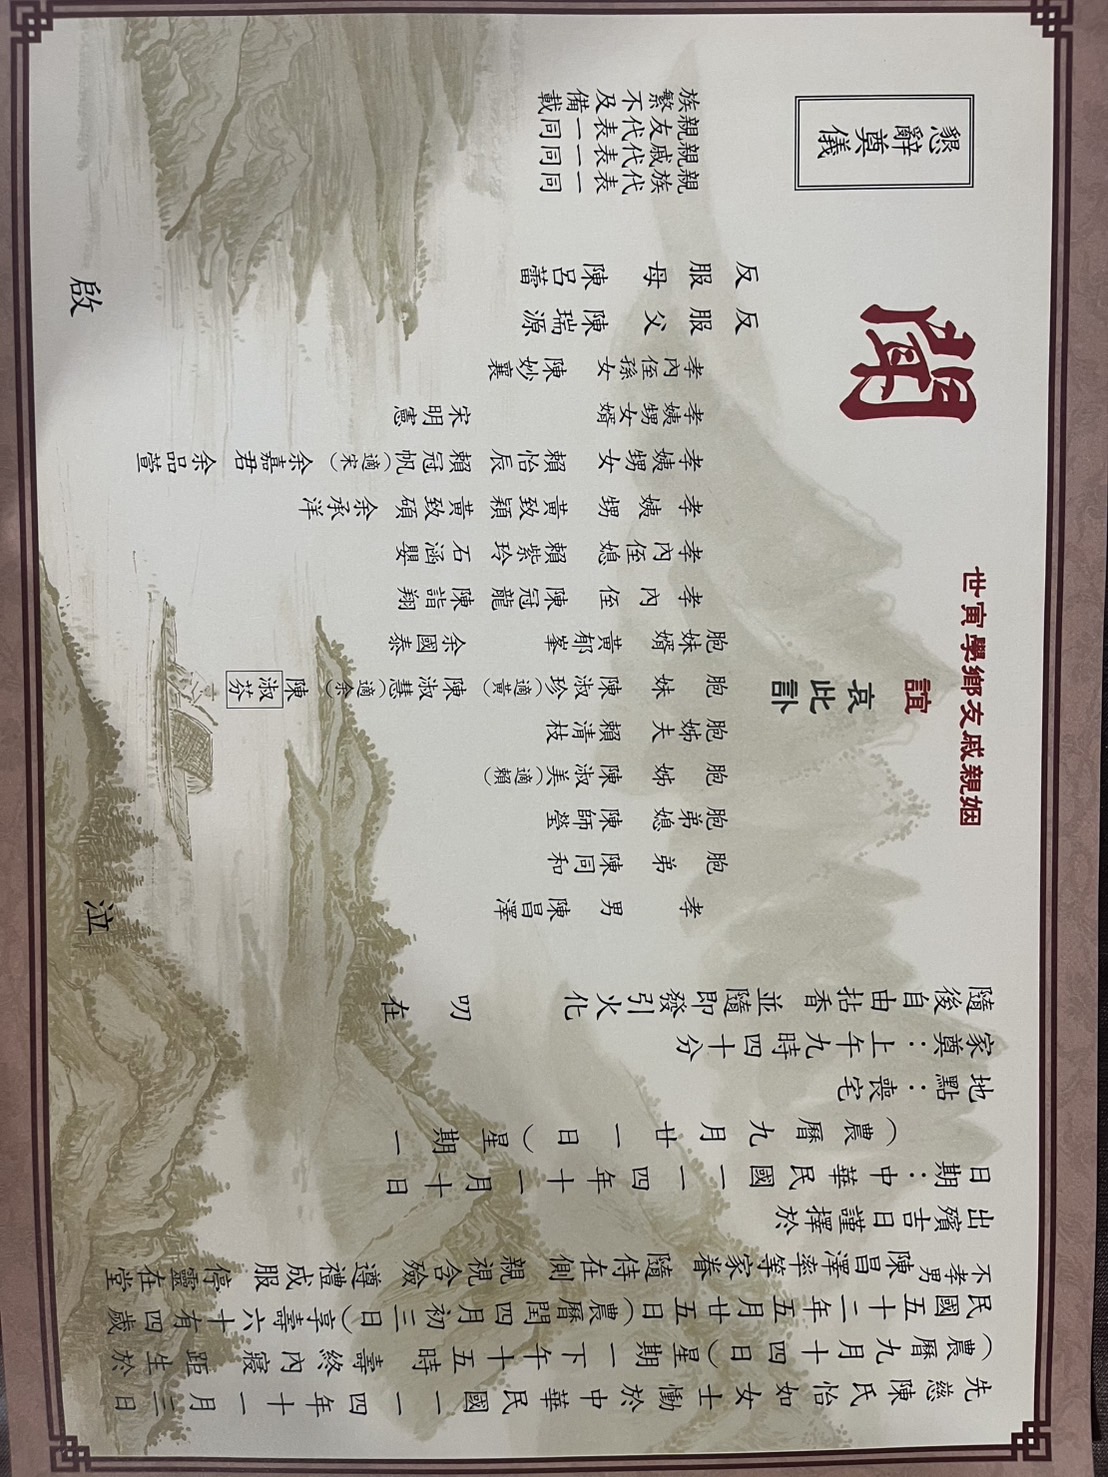 先慈陳氏怡如女士慟於中華民國一一四年十一月三日
（農曆九月十四日）星期一下午十五時壽終內寢距生於
民國五十二年五月廿五日（農曆閏四月初三日）享壽六十有四歲
不孝男陳昌澤等率家眷隨侍在側親視含殮遵禮成服停靈在堂
出殯吉日謹擇於
日期：中華民國一一四年十一月十日
（農曆九月廿一日）星期一
地點：喪宅
家奠：上午九時四十分
隨後自由拈香並隨即發引火化 叨在
姻親戚友鄉學寅世
誼
哀此訃
聞
孝男 陳昌澤
胞弟 陳同和
胞弟媳 陳師瑩
胞姊 陳淑美（適賴）
胞姊夫 賴清枝
胞妹 陳淑珍（適黃） 陳淑慧（適余） 陳淑芬
胞妹婿 黃郁峯 余國泰
孝內侄 陳冠龍 陳詣翔
孝內侄媳 賴紫玲 石涵嬰
孝姨甥 黃致穎 黃致碩 余承洋
孝姨甥女 賴怡辰 賴冠帆（適宋） 余嘉君 余品萱
孝姨甥女婿 宋明憲
孝內侄孫女 陳妙襄
反服父 陳瑞源
反服母 陳呂蕾
泣 啟
親族代表一同
親戚代表一同
親友代表一同
族繁不及備載
懇辭奠儀